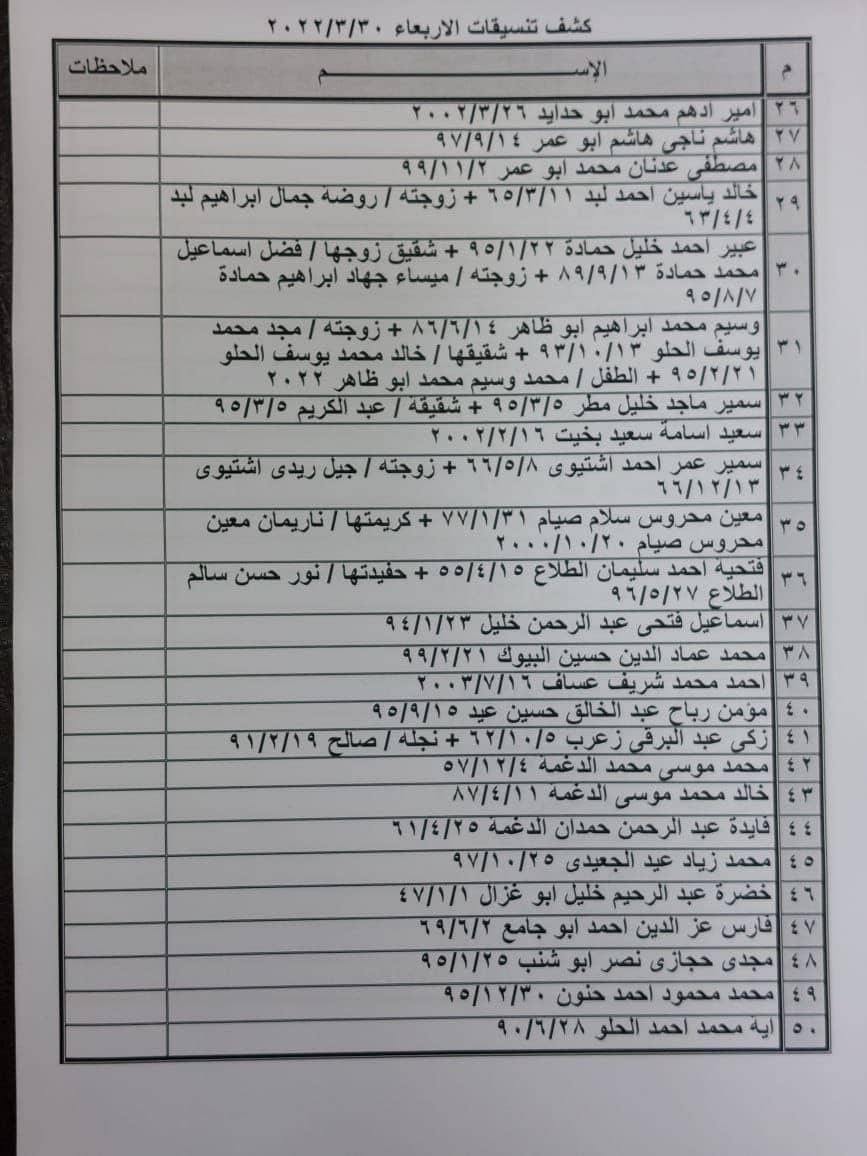 كشف تنسيقات الاربعاء ٢٠٢٢/٣/٣٠
م الإســـــــــــم ملاحظات
٢٦ امير ادهم محمد ابو حدايد ٢٠٠٢/٣/٢٦
٢٧ هاشم ناجى هاشم ابو عمر ٩٧/٩/١٤
٢٨ مصطفى عدنان محمد ابو عمر ٩٩/١١/٢
٢٩ خالد ياسين احمد لبد ٦٥/٣/١١ + زوجته / روضة جمال ابراهيم لبد
٦٣/٤/٤
٣٠ عبير احمد خليل حمادة ٩٥/١/٢٢ + شقيق زوجها / فضل اسماعيل
محمد حمادة ٨٩/٩/١٣ + زوجته / ميساء جهاد ابراهيم حمادة
٩٥/٨/٧
٣١ وسيم محمد ابراهيم ابو ظاهر ٨٦/٦/١٤ + زوجته / مجد محمد
يوسف الحلو ٩٣/١٠/١٣ + شقيقها / خالد محمد يوسف الحلو
٩٥/٢/٢١ + الطفل / محمد وسيم محمد ابو ظاهر ٢٠٢٢
٣٢ سمير ماجد خليل مطر ٩٥/٣/٥ + شقيقة / عبد الكريم ٩٥/٣/٥
٣٣ سعيد اسامة سعيد بخيت ٢٠٠٢/٢/١٦
٣٤ سمير عمر احمد اشتيوى ٦٦/٥/٨ + زوجته / جيل ريدى اشتيوى
٦٦/١٢/١٣
٣٥ معين محروس سلام صيام ٧٧/١/٣١ + كريمتها / ناريمان معين
محروس صيام ٢٠٠٠/١٠/٢٠
٣٦ فتحية احمد سليمان الطلاع ٥٥/٤/١٥ + حفيدتها / نور حسن سالم
الطلاع ٩٦/٥/٢٧
٣٧ اسماعيل فتحى عبد الرحمن خليل ٩٤/١/٢٣
٣٨ محمد عماد الدين حسين البيوك ٩٩/٢/٢١
٣٩ احمد محمد شريف عساف ٢٠٠٣/٧/١٦
٤٠ مؤمن رباح عبد الخالق حسين عيد ٩٥/٩/١٥
٤١ زكى عبد البرقى زعرب ٦٢/١٠/٥ + نجله / صالح ٩١/٢/١٩
٤٢ محمد موسى محمد الدغمة ٥٧/١٢/٤
٤٣ خالد محمد موسى الدغمة ٨٧/٤/١١
٤٤ فايدة عبد الرحمن حمدان الدغمة ٦١/٤/٢٥
٤٥ محمد زياد عيد الجعيدى ٩٧/١٠/٢٥
٤٦ خضرة عبد الرحيم خليل ابو غزال ٤٧/١/١
٤٧ فارس عز الدين احمد ابو جامع ٦٩/٦/٢
٤٨ مجدى حجازى نصر ابو شنب ٩٥/١/٢٥
٤٩ محمد محمود احمد حنون ٩٥/١٢/٣٠
٥٠ اية محمد احمد الحلو ٩٠/٦/٢٨